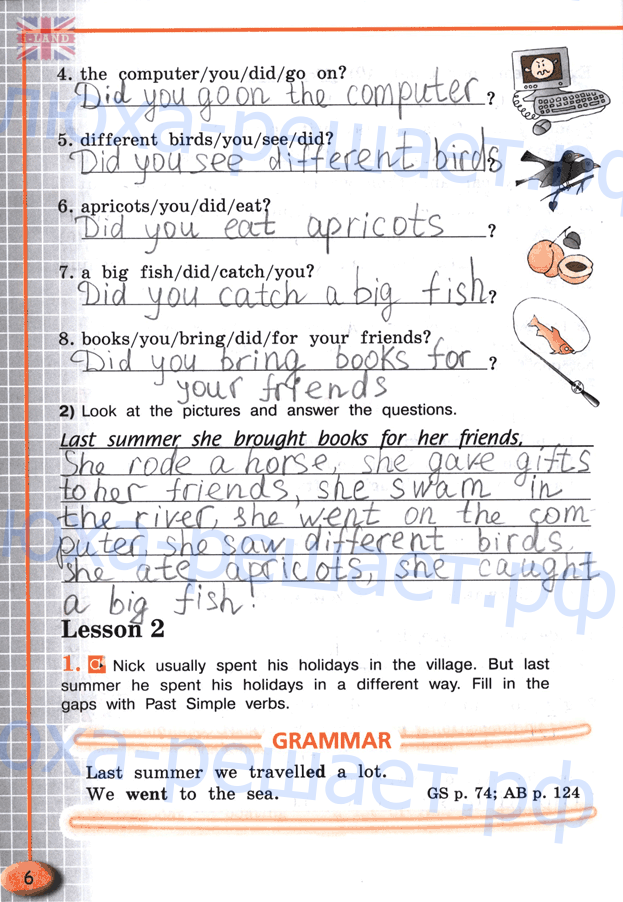 I-LAND
4. the computer/you/did/go on?
Did you go on the computer ?
5. different birds/you/see/did?
Did you see different birds ?
6. apricots/you/did/eat?
Did you eat apricots ?
7. a big fish/did/catch/you?
Did you catch a big fish ?
8. books/you/bring/did/for your friends?
Did you bring books for ?
your friends
2) Look at the pictures and answer the questions.
Last summer she brought books for her friends,
She rode a horse, she gave gifts
to her friends, she swam in
the river, she went on the com
puter, she saw different birds,
she ate apricots, she caught
a big fish!
Lesson 2
1. Nick usually spent his holidays in the village. But last
summer he spent his holidays in a different way. Fill in the
gaps with Past Simple verbs.
GRAMMAR
Last summer we travelled a lot.
We went to the sea. GS p. 74; AB p. 124
6
люха-решает.рф
юха-решает.рф
юха-решает.рф